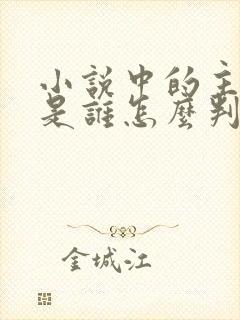 小說中的主
是誰怎麼判
金城江